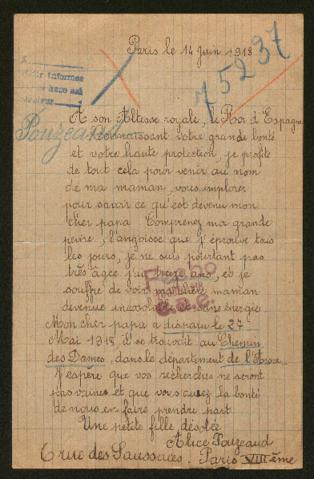 Paris le 14 juin 1918
75237
informes
Pouzeaud
A son Altesse royale, le Roi d'Espagne
Connaissant votre grande bonté
et votre haute protection, je profite
de tout cela pour venir au nom
de ma maman, vous implorer
pour savoir ce qu'est devenu mon
cher papa. Comprenez ma grande
peine, l'angoisse que j'éprouve tous
les jours, je ne suis pourtant pas
très âgée j'ai treize ans, et je
souffre de voir ma mère maman
devenue sans énergie
Mon cher papa a disparu le 27
Mai 1918 il se trouvait au Chemin
des Dames, dans le département de l'Aisne
J'espère que vos recherches ne seront
pas vaines et que vous aurez la bonté
de nous en faire prendre part.
Une petite fille désolée
Alice Pouzeaud
6 rue des Saussaies. Paris VIIIème